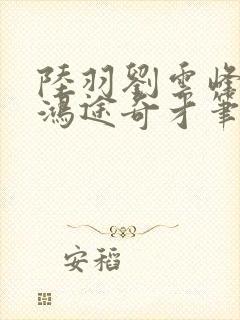 陸羽劉雲峰
鴻途奇才筆
安稻